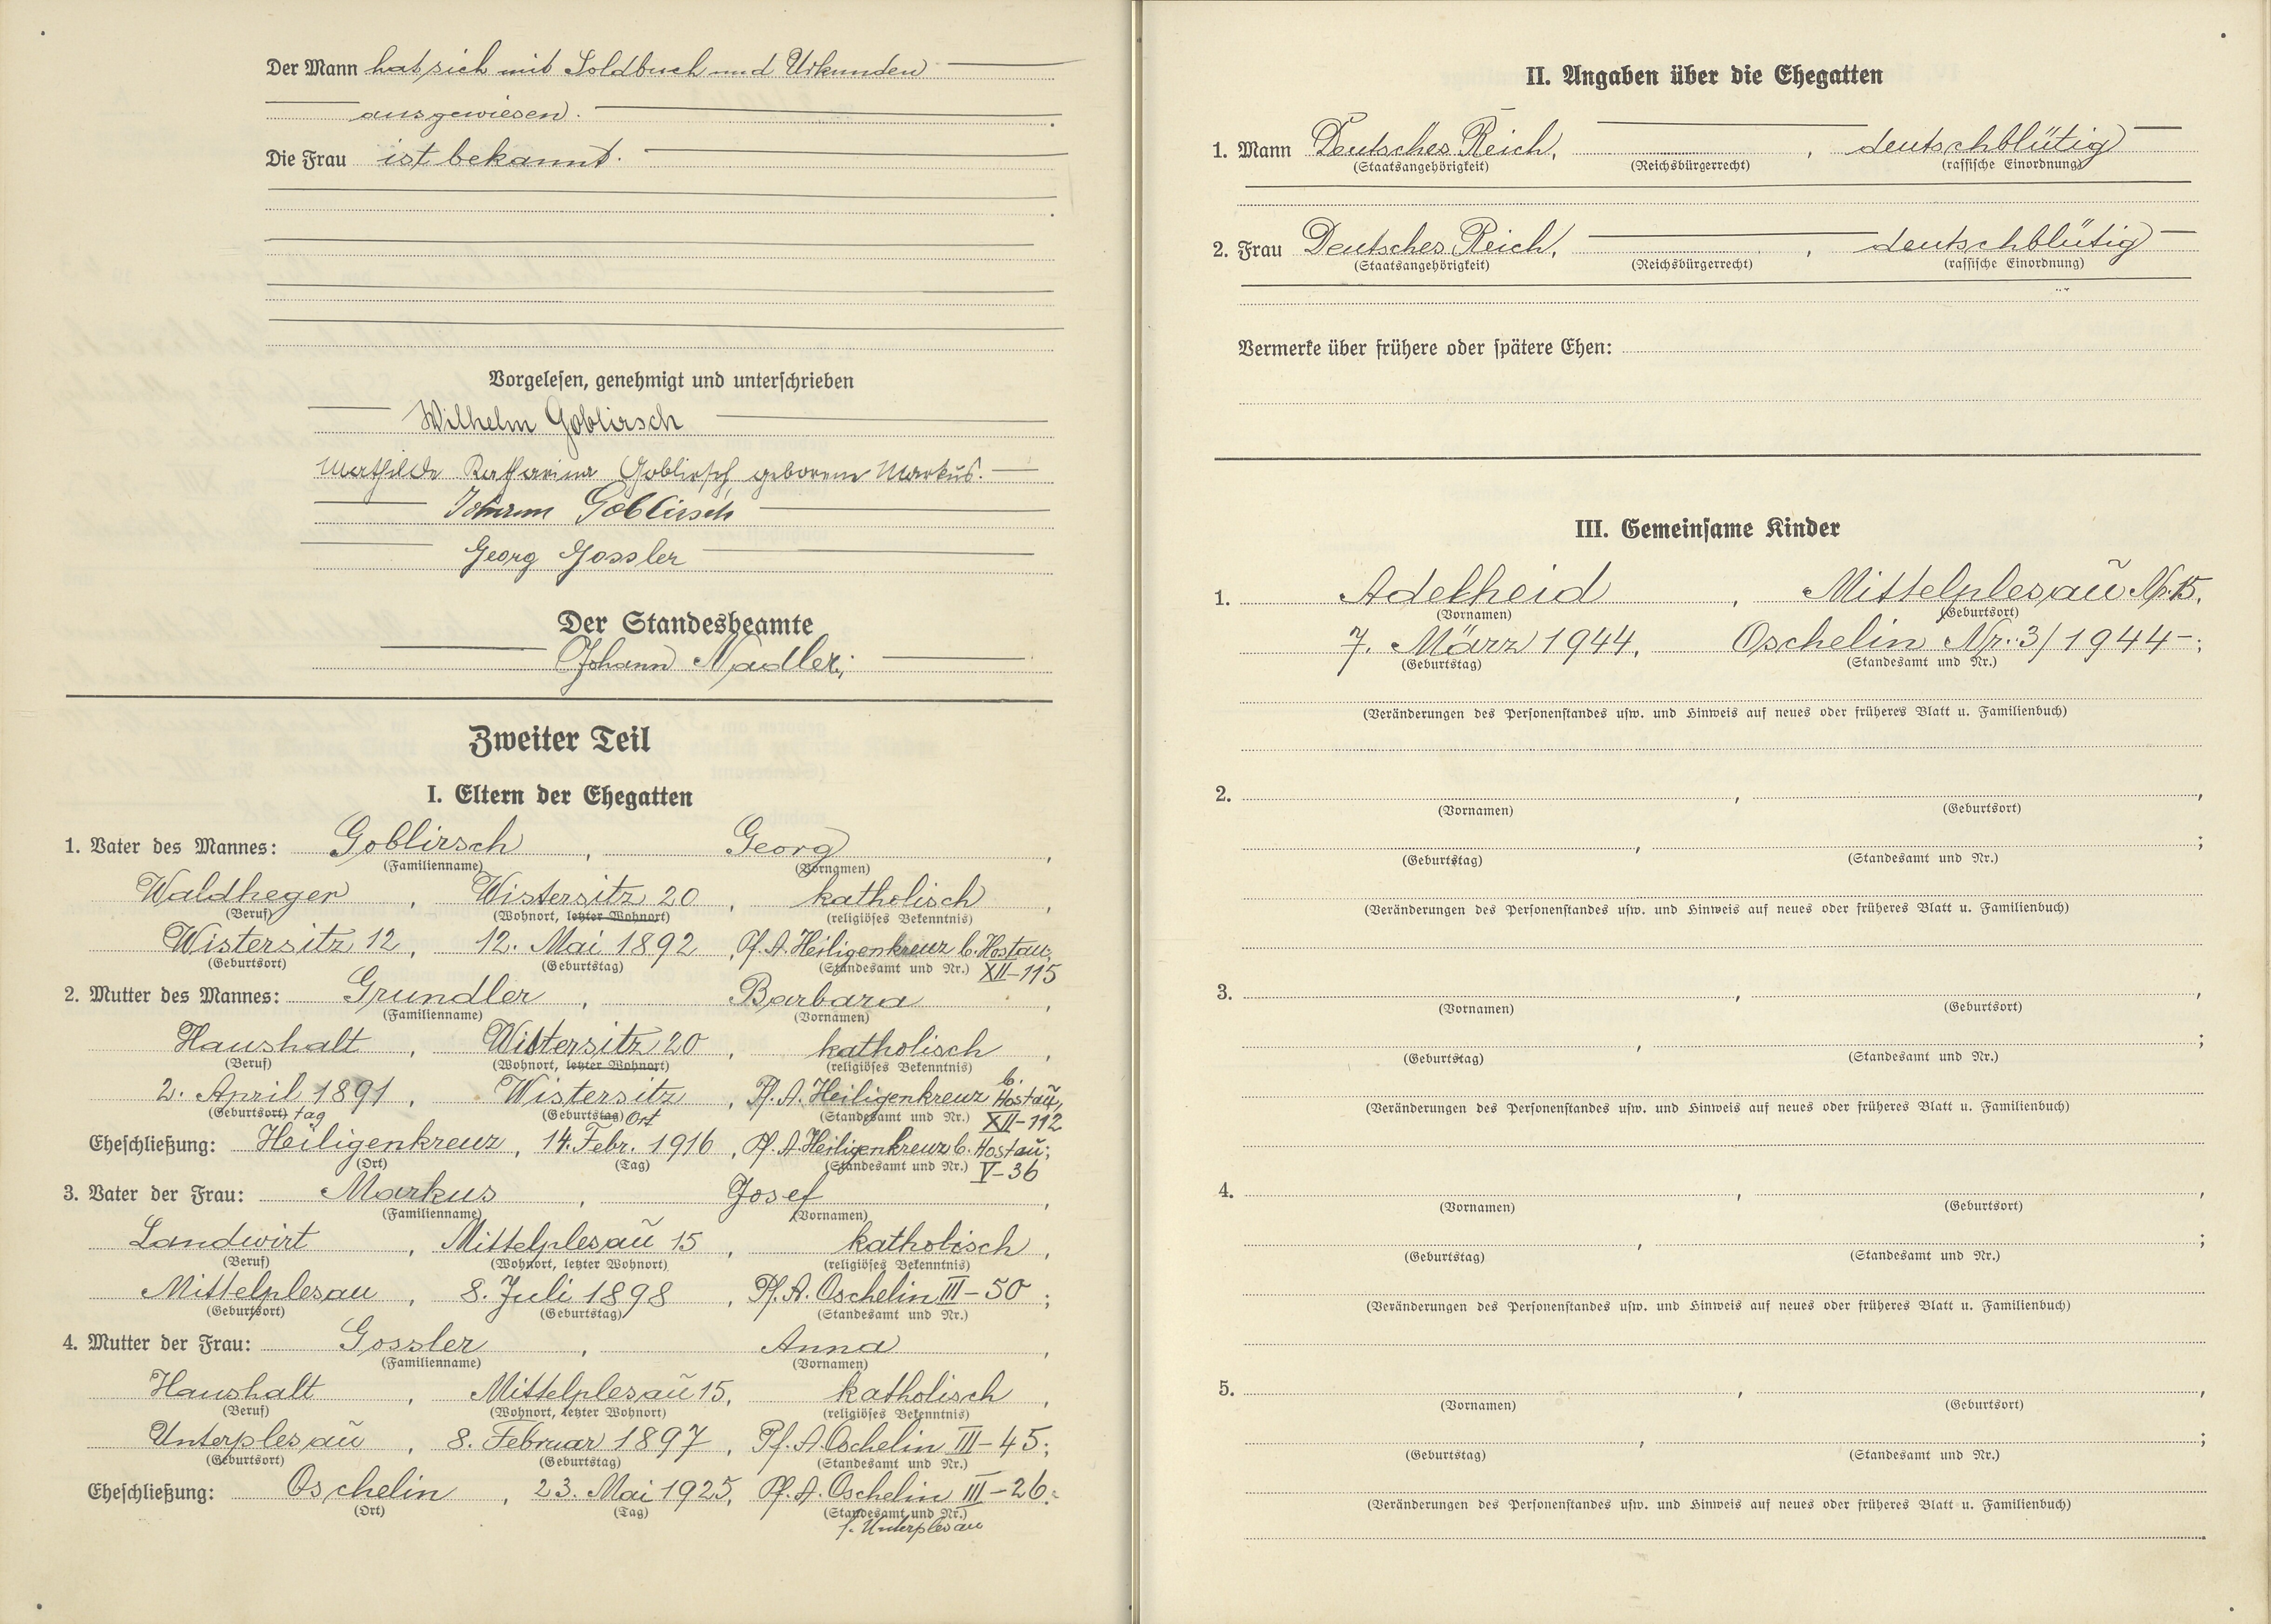 Der Mann hat sich mit Soldbuch und Urkunden
ausgewiesen.
Die Frau ist bekannt.
Vorgelesen, genehmigt und unterschrieben
Wilhelm Goblirsch
Mathilde Katharina Goblirsch, geborene Markus.
Johann Goblirsch
Georg Gossler
Der Standesbeamte
Johann Nadler;
Zweiter Teil
I. Eltern der Ehegatten
1. Vater des Mannes: Goblirsch, Georg,
(Familienname) (Vornamen)
Waldheger, Wistersitz 20, katholisch,
(Beruf) (Wohnort, letzter Wohnort) (religiöses Bekenntnis)
Wistersitz 12, 12. Mai 1892, Pf. A. Heiligenkreuz b. Hostau;
(Geburtsort) (Geburtstag) (Standesamt und Nr.) XII-115
2. Mutter des Mannes: Grundler, Barbara,
(Familienname) (Vornamen)
Haushalt, Wistersitz 20, katholisch,
(Beruf) (Wohnort, letzter Wohnort) (religiöses Bekenntnis)
2. April 1891, Wistersitz, Pf. A. Heiligenkreuz b. Hostaŭ,
(Geburtsort) tag (Geburtstag) Ort (Standesamt und Nr.) XII-112
Eheschließung: Heiligenkreuz, 14. Febr. 1916, Pf. A. Heiligenkreuz b. Hostaŭ;
(Ort) (Tag) (Standesamt und Nr.) V-36
3. Vater der Frau: Markus, Josef,
(Familienname) (Vornamen)
Landwirt, Mittelplesaŭ 15, katholisch,
(Beruf) (Wohnort, letzter Wohnort) (religiöses Bekenntnis)
Mittelplesau, 8. Juli 1898, Pf. A. Oschelin III-50;
(Geburtsort) (Geburtstag) (Standesamt und Nr.)
4. Mutter der Frau: Gossler, Anna,
(Familienname) (Vornamen)
Haushalt, Mittelplesaŭ 15, katholisch,
(Beruf) (Wohnort, letzter Wohnort) (religiöses Bekenntnis)
Unterplesaŭ, 8. Februar 1897, Pf. A. Oschelin III-45;
(Geburtsort) (Geburtstag) (Standesamt und Nr.)
Eheschließung: Oschelin, 23. Mai 1925, Pf. A. Oschelin III-26.
(Ort) (Tag) (Standesamt und Nr.)
f. Unterplesau
II. Angaben über die Ehegatten
1. Mann Deutsches Reich, , deutschblütig
(Staatsangehörigkeit) (Reichsbürgerrecht) (rassische Einordnung)
2. Frau Deutsches Reich, , deutschblütig
(Staatsangehörigkeit) (Reichsbürgerrecht) (rassische Einordnung)
Vermerke über frühere oder spätere Ehen:
III. Gemeinsame Kinder
1. Adelheid, Mittelplesaŭ Nr. 15,
(Vornamen) (Geburtsort)
7. März 1944, Oschelin Nr. 3/1944-;
(Geburtstag) (Standesamt und Nr.)
(Veränderungen des Personenstandes usw. und Hinweis auf neues oder früheres Blatt u. Familienbuch)
2. , ,
(Vornamen) (Geburtsort)
, ;
(Geburtstag) (Standesamt und Nr.)
(Veränderungen des Personenstandes usw. und Hinweis auf neues oder früheres Blatt u. Familienbuch)
3. , ,
(Vornamen) (Geburtsort)
, ;
(Geburtstag) (Standesamt und Nr.)
(Veränderungen des Personenstandes usw. und Hinweis auf neues oder früheres Blatt u. Familienbuch)
4. , ,
(Vornamen) (Geburtsort)
, ;
(Geburtstag) (Standesamt und Nr.)
(Veränderungen des Personenstandes usw. und Hinweis auf neues oder früheres Blatt u. Familienbuch)
5. , ,
(Vornamen) (Geburtsort)
, ;
(Geburtstag) (Standesamt und Nr.)
(Veränderungen des Personenstandes usw. und Hinweis auf neues oder früheres Blatt u. Familienbuch)